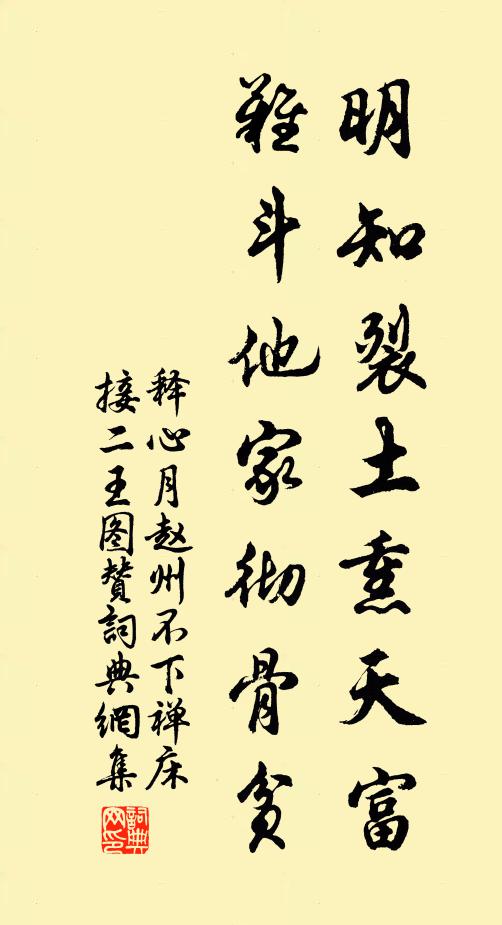 明知裂土熏天富
難斗他家彻骨貧
释心月赵州不下禅床
接二王图赞詞典網集
詞典網印